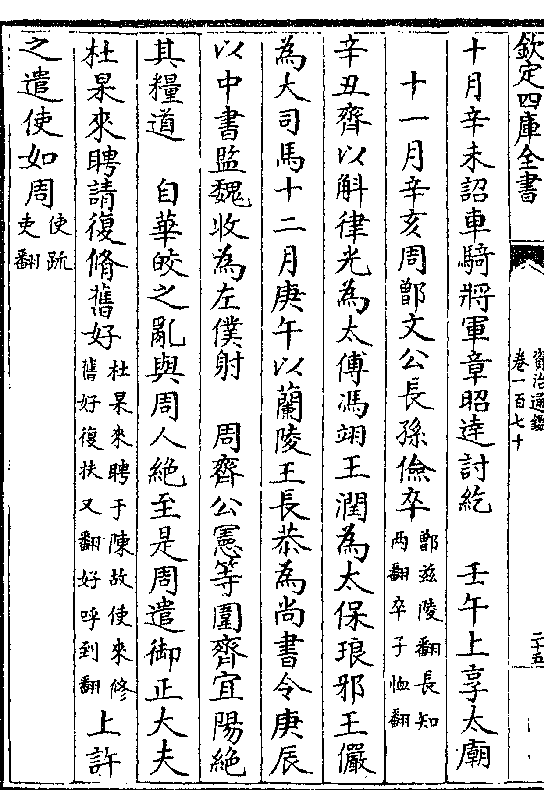 欽定四庫全書
資治通鑑
卷一百七十
二十五
十月辛未詔車騎將軍章昭達討紇　壬午上享太廟
十一月辛亥周鄫文公長孫儉卒鄫兹陵翻長知
两翻卒子恤翻
辛丑齊以斛律光為太傅馮翊王潤為太保琅邪王儼
為大司馬十二月庚午以蘭陵王長恭為尚書令庚辰
以中書監魏收為左僕射　周齊公憲等圍齊宜陽絶
其糧道　自華皎之亂與周人絶至是周遣御正大夫
杜杲來聘請復脩舊好杜杲來聘于陳故使來修
舊好復扶又翻好呼到翻上許
之遣使如周使疏
吏翻